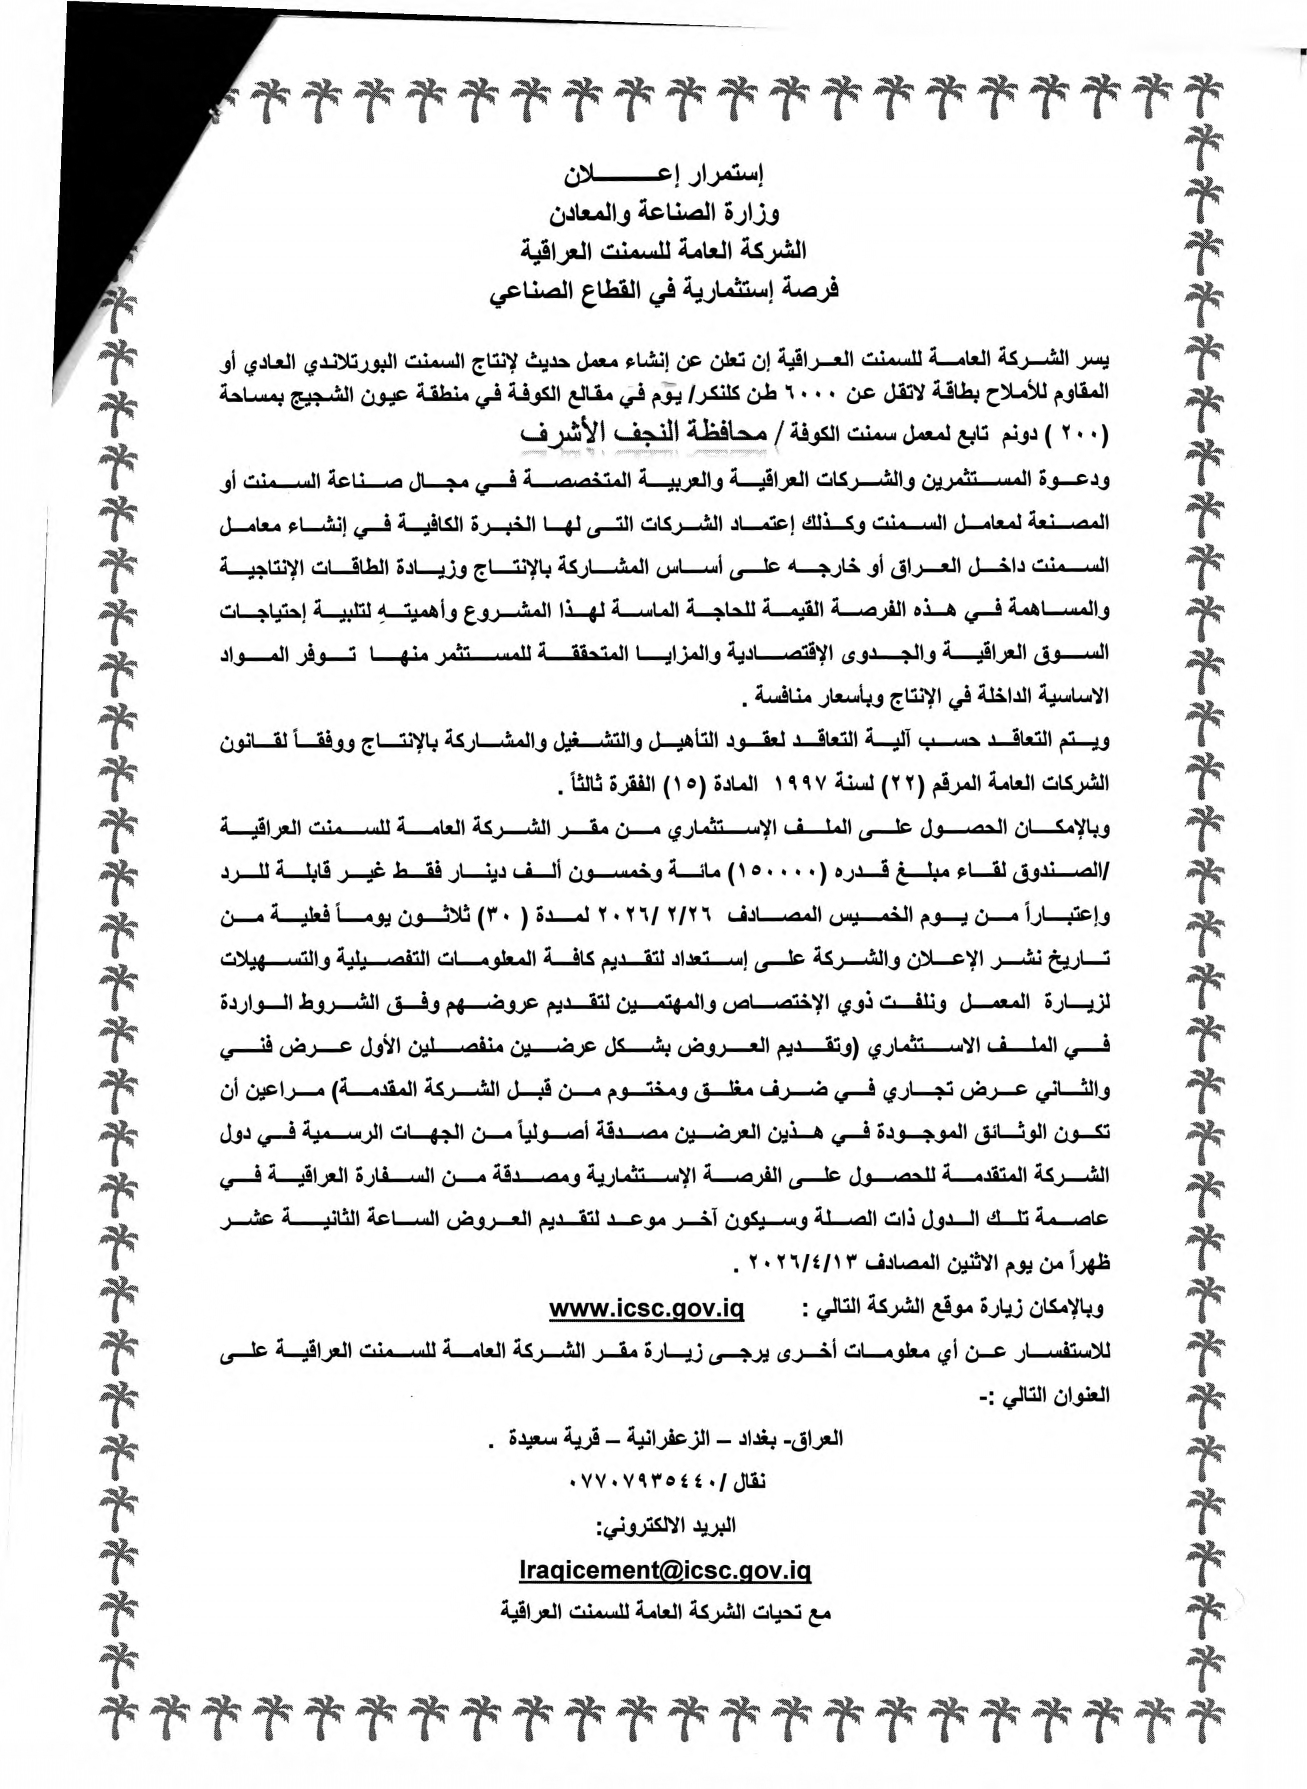 إستمرار إعـــــــلان
وزارة الصناعة والمعادن
الشركة العامة للسمنت العراقية
فرصة إستثمارية في القطاع الصناعي
يسر الشركة العامة للسمنت العراقية إن تعلن عن إنشاء معمل حديث لإنتاج السمنت البورتلاندي العادي أو
المقاوم للأملاح بطاقة لاتقل عن ٦٠٠٠ طن كلنكر/ يوم في مقالع الكوفة في منطقة عيون الشجيج بمساحة
(٢٠٠ ) دونم تابع لمعمل سمنت الكوفة / محافظة النجف الأشرف
ودعوة المستثمرين والشركات العراقية والعربية المتخصصة في مجال صناعة السمنت أو
المصنعة لمعامل السمنت وكذلك إعتماد الشركات التي لها الخبرة الكافية في إنشاء معامل
السمنت داخل العراق أو خارجه على أساس المشاركة بالإنتاج وزيادة الطاقات الإنتاجية
والمساهمة في هذه الفرصة القيمة للحاجة الماسة لهذا المشروع وأهميتهِ لتلبية إحتياجات
السوق العراقية والجدوى الإقتصادية والمزايا المتحققة للمستثمر منها توفر المواد
الاساسية الداخلة في الإنتاج وبأسعار منافسة .
ويتم التعاقد حسب آلية التعاقد لعقود التأهيل والتشغيل والمشاركة بالإنتاج ووفقاً لقانون
الشركات العامة المرقم (٢٢) لسنة ١٩٩٧ المادة (١٥) الفقرة ثالثاً .
وبالإمكان الحصول على الملف الإستثماري من مقر الشركة العامة للسمنت العراقية
/الصندوق لقاء مبلغ قدره (١٥٠٠٠٠) مائة وخمسون ألف دينار فقط غير قابلة للرد
وإعتباراً من يوم الخميس المصادف ٢٠٢٦/ ٢/٢٦ لمدة ( ٣٠) ثلاثون يوماً فعلية من
تاريخ نشر الإعلان والشركة على إستعداد لتقديم كافة المعلومات التفصيلية والتسهيلات
لزيارة المعمل ونلفت ذوي الإختصاص والمهتمين لتقديم عروضهم وفق الشروط الواردة
في الملف الاستثماري (وتقديم العروض بشكل عرضين منفصلين الأول عرض فني
والثاني عرض تجاري في ضرف مغلق ومختوم من قبل الشركة المقدمة) مراعين أن
تكون الوثائق الموجودة في هذين العرضين مصدقة أصولياً من الجهات الرسمية في دول
الشركة المتقدمة للحصول على الفرصة الإستثمارية ومصدقة من السفارة العراقية في
عاصمة تلك الدول ذات الصلة وسيكون آخر موعد لتقديم العروض الساعة الثانية عشر
ظهراً من يوم الاثنين المصادف ٢٠٢٦/٤/١٣ .
وبالإمكان زيارة موقع الشركة التالي : www.icsc.gov.iq
للاستفسار عن أي معلومات أخرى يرجى زيارة مقر الشركة العامة للسمنت العراقية على
العنوان التالي :-
العراق- بغداد – الزعفرانية – قرية سعيدة .
نقال /٠٧٧٠٧٩٣٥٤٤٠
البريد الالكتروني:
Iraqicement@icsc.gov.iq
مع تحيات الشركة العامة للسمنت العراقية